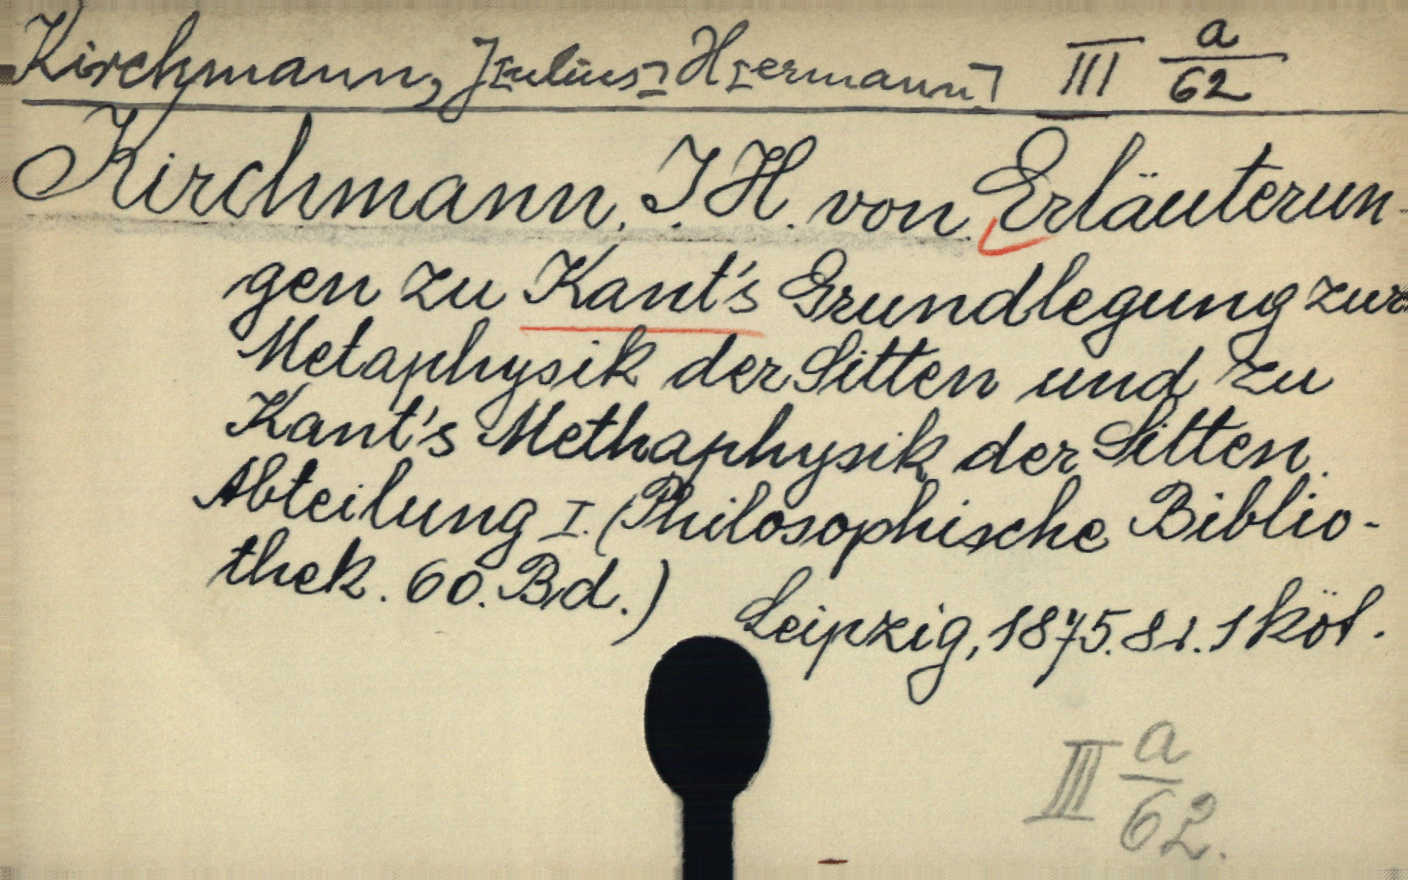 Kirchmann, J[ulius] H[ermann] III a/62
Kirchmann, J. H. von. Erläuterun-
gen zu Kant's Grundlegung zur
Metaphysik der Sitten und zu
Kant's Methaphysik der Sitten.
Abteilung I. (Philosophische Biblio-
thek. 60. Bd.) Leipzig, 1875. 8r. 1 köt.
III a/62.